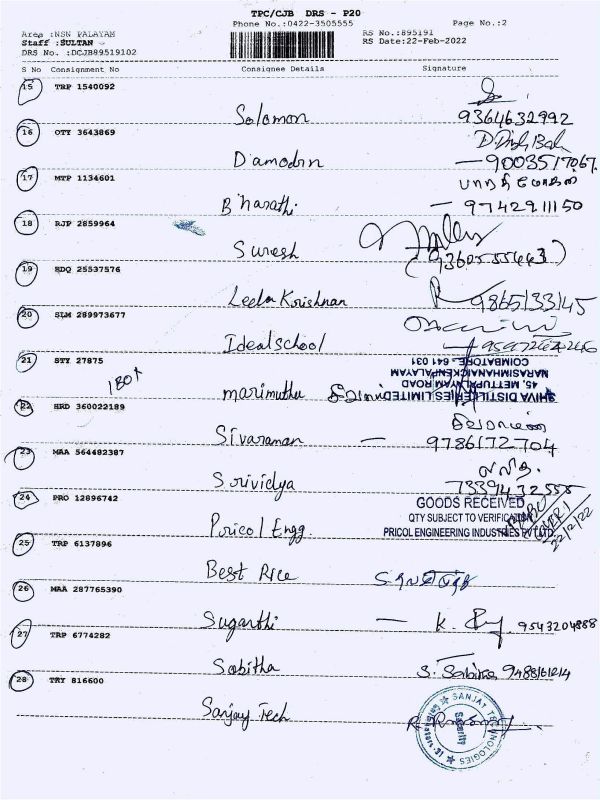 TPC/CJB DRS - P20
Phone No.:0422-3505555 Page No.:2
Area :NSN PALAYAM RS No.:895191
Staff :SULTAN RS Date:22-Feb-2022
DRS No. :DCJB89519102
S No Consignment No Consignee Details Signature
15 TRP 1540092
Solomon 9364632992
16 OTY 3643869
Damodrn 9003517067.
17 MTP 1134601
Bharathi - 9742911150
18 RJP 2859964
Suresh
19 BDQ 25537576
Leela Krishnan 9865133145
20 SLM 289973677
Ideal school
21 STY 27875
SHIVA DISTILLERIES LIMITED
45, METTUPALAYAM ROAD
NARASIMHANAICKENPALAYAM
COIMBATORE - 641 031
1 BOX
marimuthu
22 HRD 360022189
Sivaraman - 9786172704
23 MAA 564482387
Srividya 7339432555
24 PRO 12896742
GOODS RECEIVED
QTY SUBJECT TO VERIFICATION
PRICOL ENGINEERING INDUSTRIES PVT LTD.
Pricol Engg. 22/2/22
25 TRP 6137896
Best Rice
26 MAA 287765390
Suganthi - K. 9543204888
27 TRP 6774282
Sabitha S. Sabitha 9488161214
28 TRY 816600
Sanjay Tech
SANJAY TECHNOLOGIES
Security